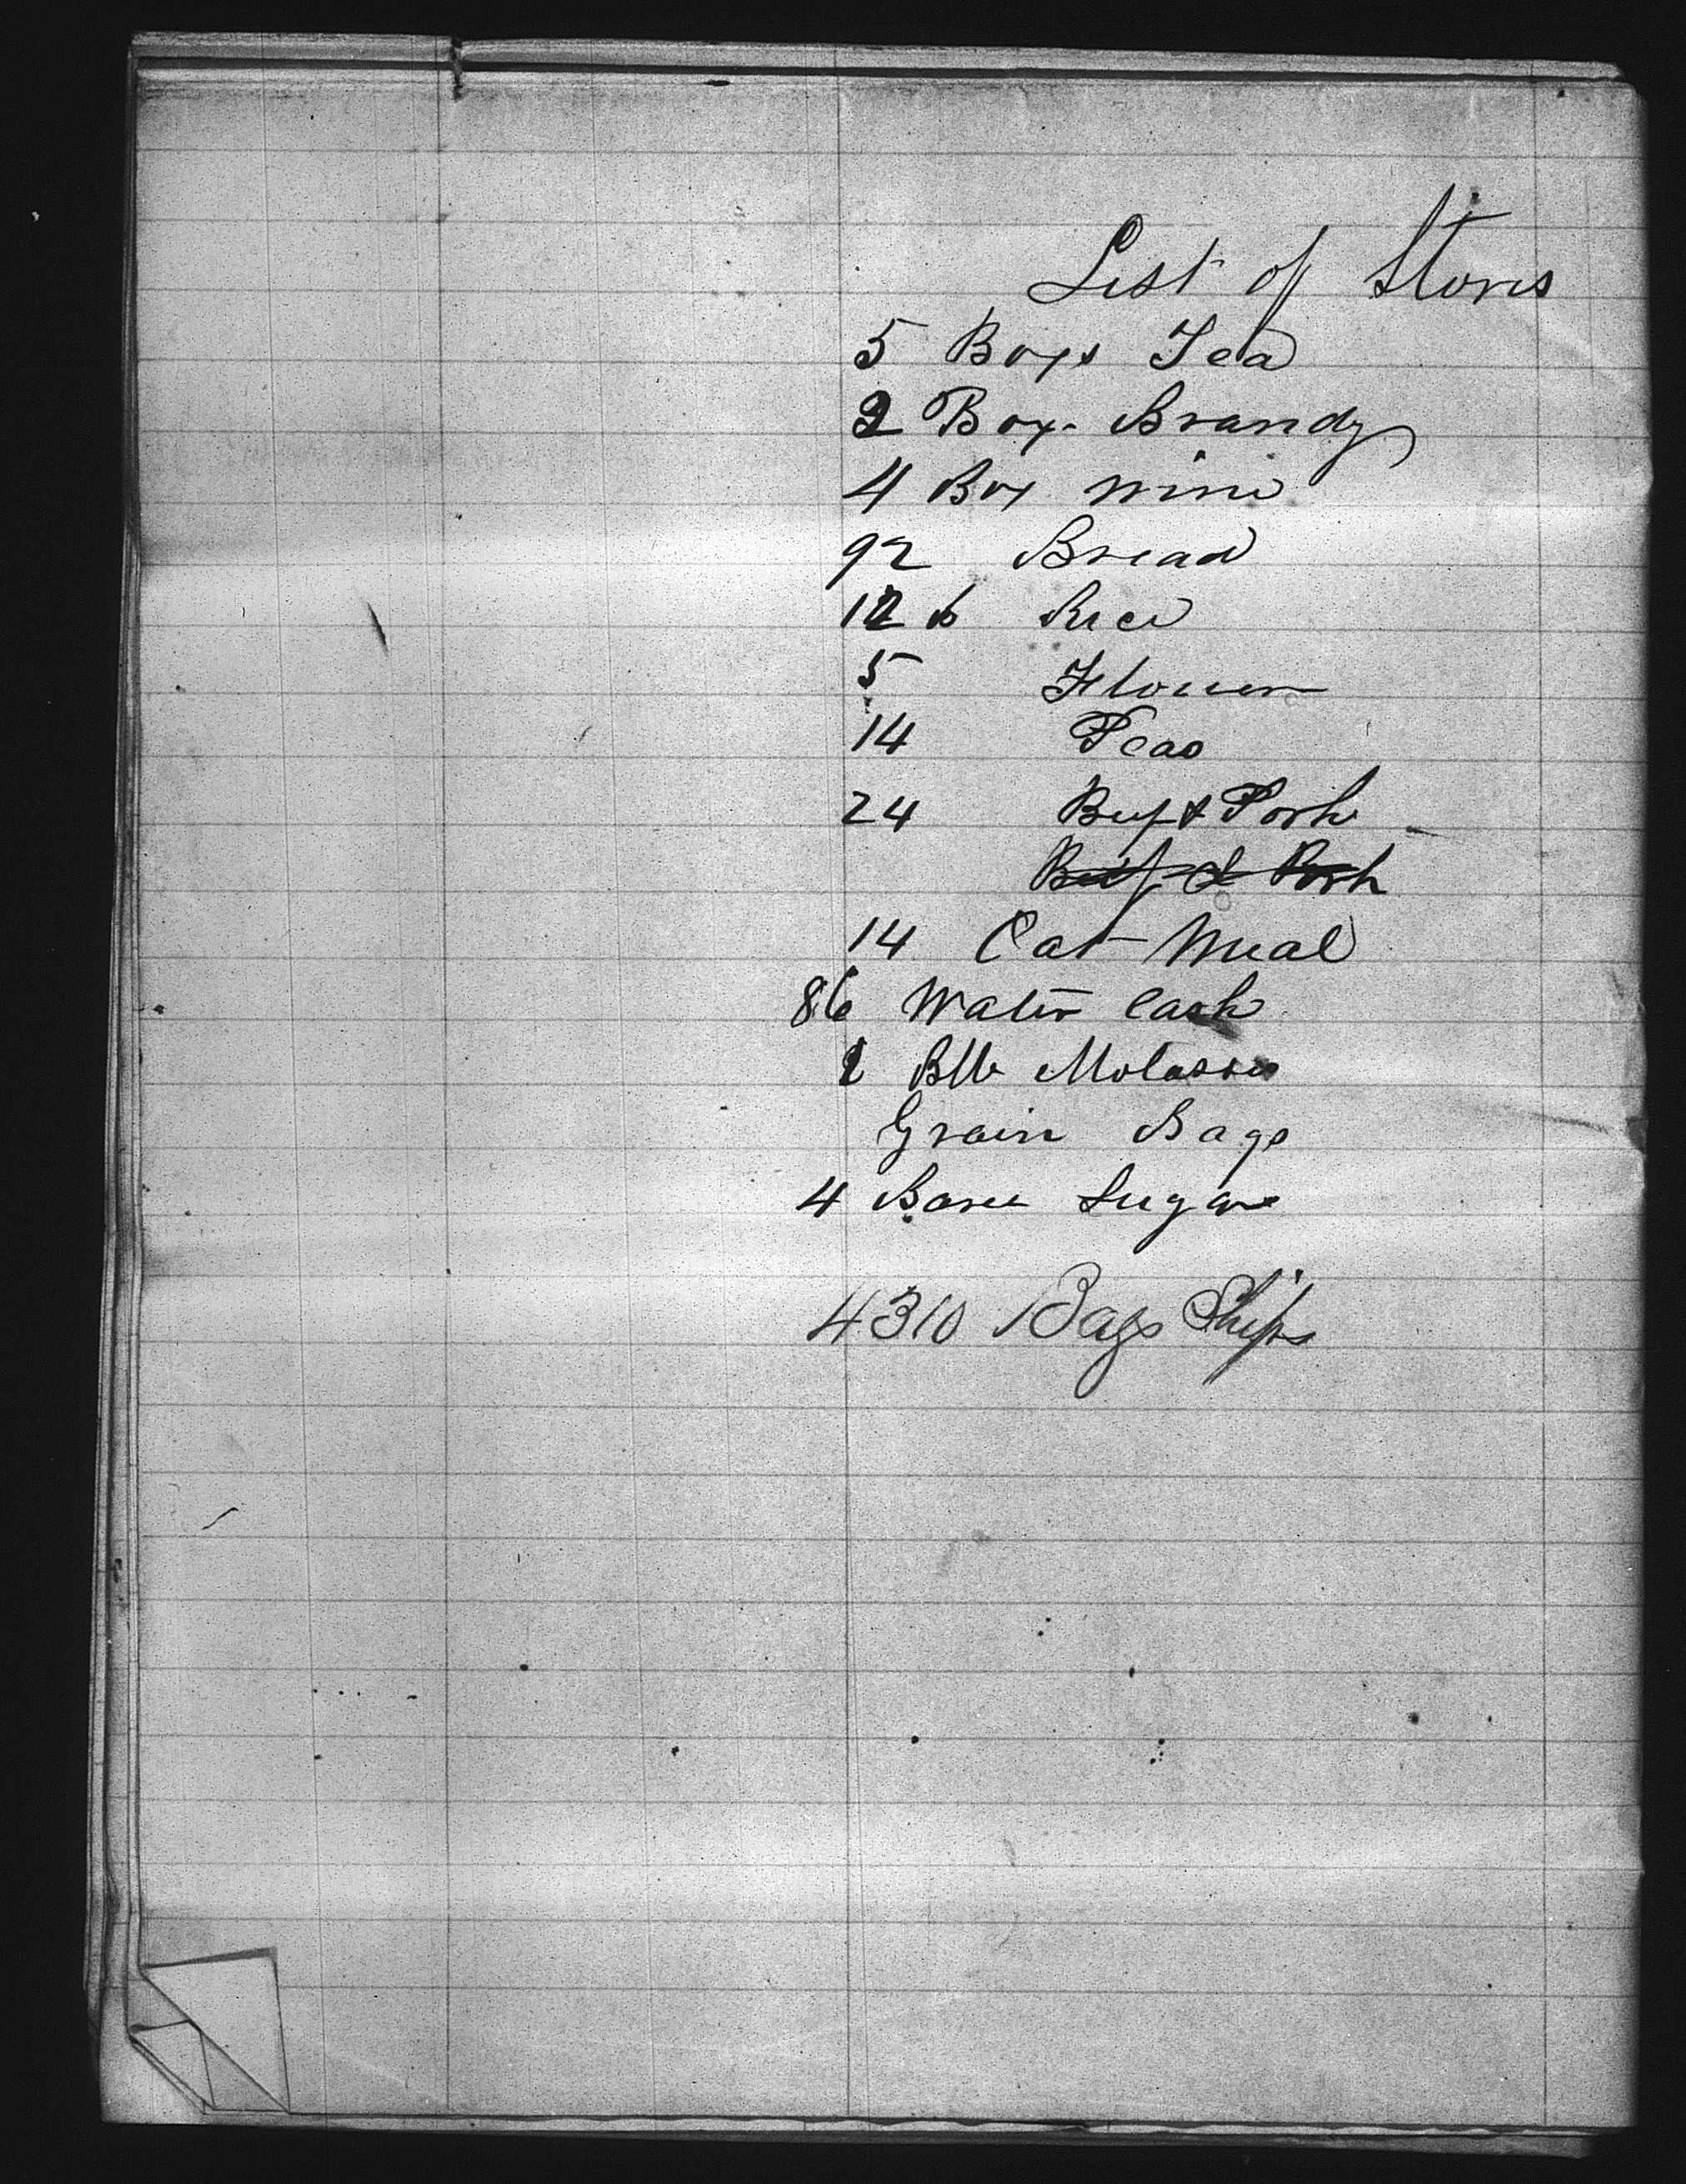 List of Stores
5 Boxs Tea
2 Box Brandy
4 Box Wine
92 Bread
12 b Rice
5 Flouer
14 Peas
24 Beef & Pork
Beef & Pork
14 Oat Meal
86 Water Cask
Molasses
Grain Bags
4 Sugar
4310 Bags Ships